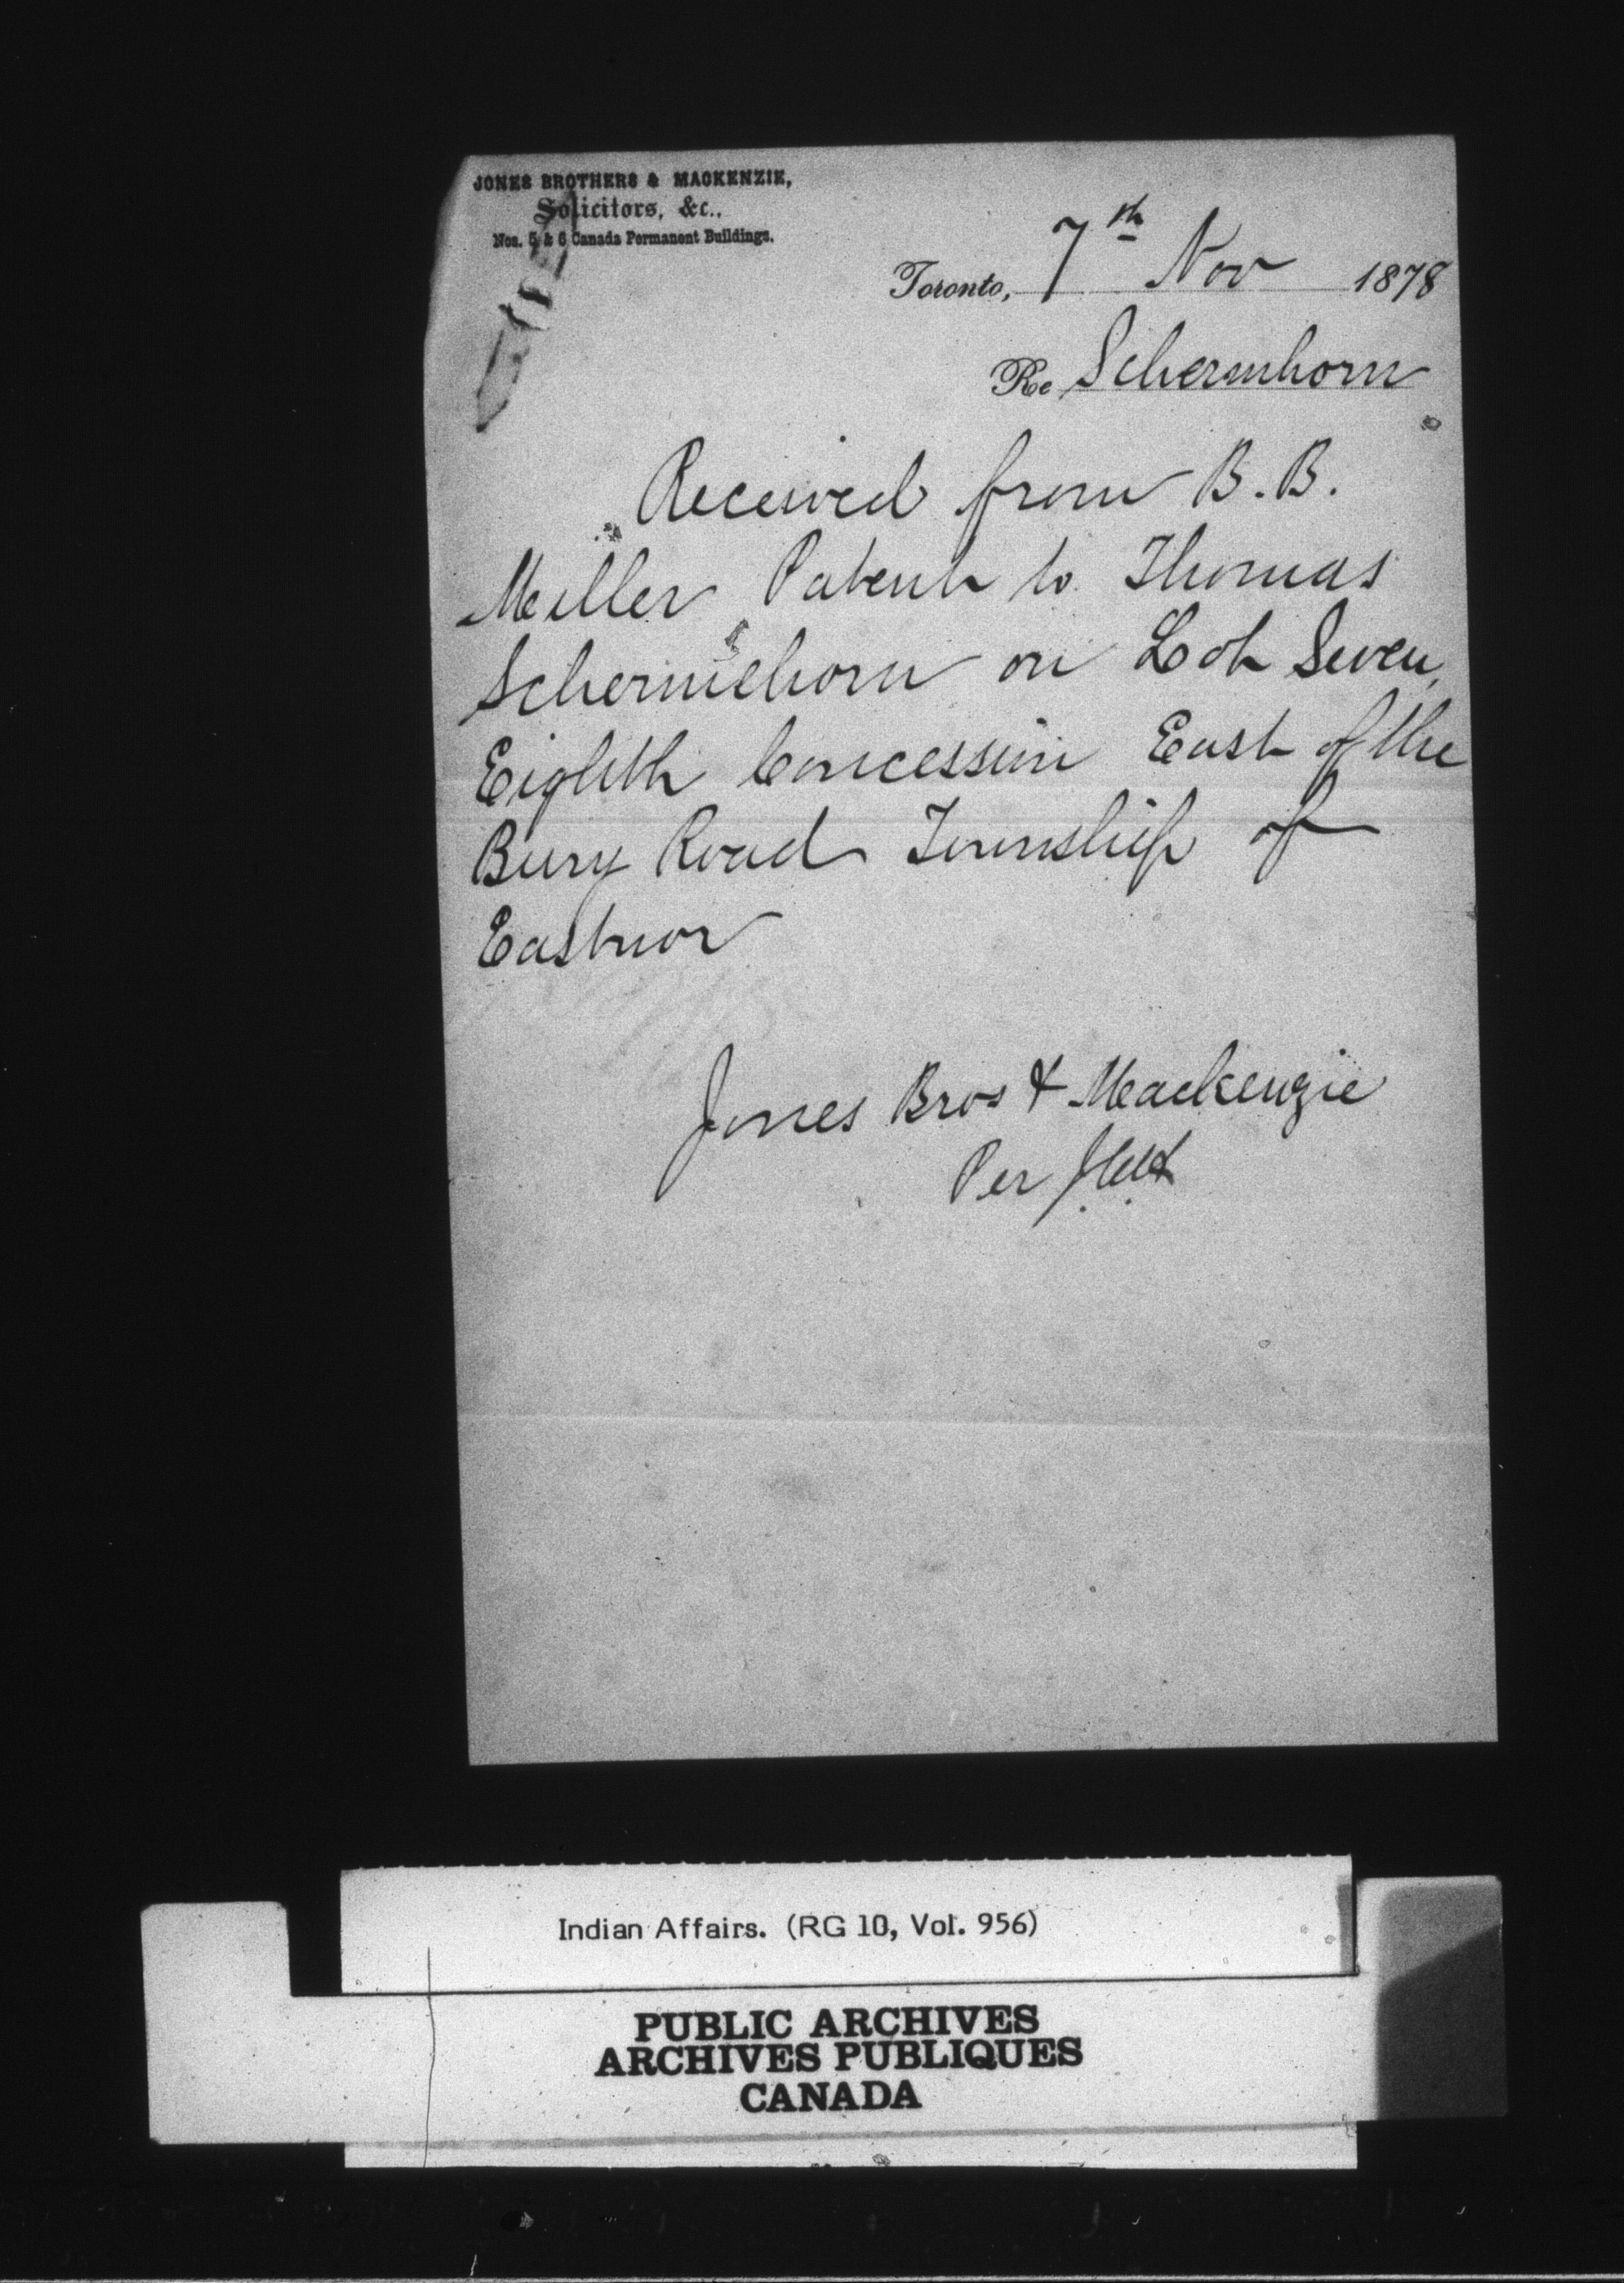 JONES BROTHERS & MACKENZIE,
Solicitors, &c.,
Nos. 5 & 6 Canada Permanent Buildings.
Toronto, 7th Nov 1878
Re Schermhorn
Received from B. B.
Miller Patent to Thomas
Schermehorn on Lot Seven,
Eighth Concession East of the
Bury Road Township of
Eastnor
Jones Bros & Mackenzie
Per
Indian Affairs. (RG 10, Vol. 956)
PUBLIC ARCHIVES
ARCHIVES PUBLIQUES
CANADA